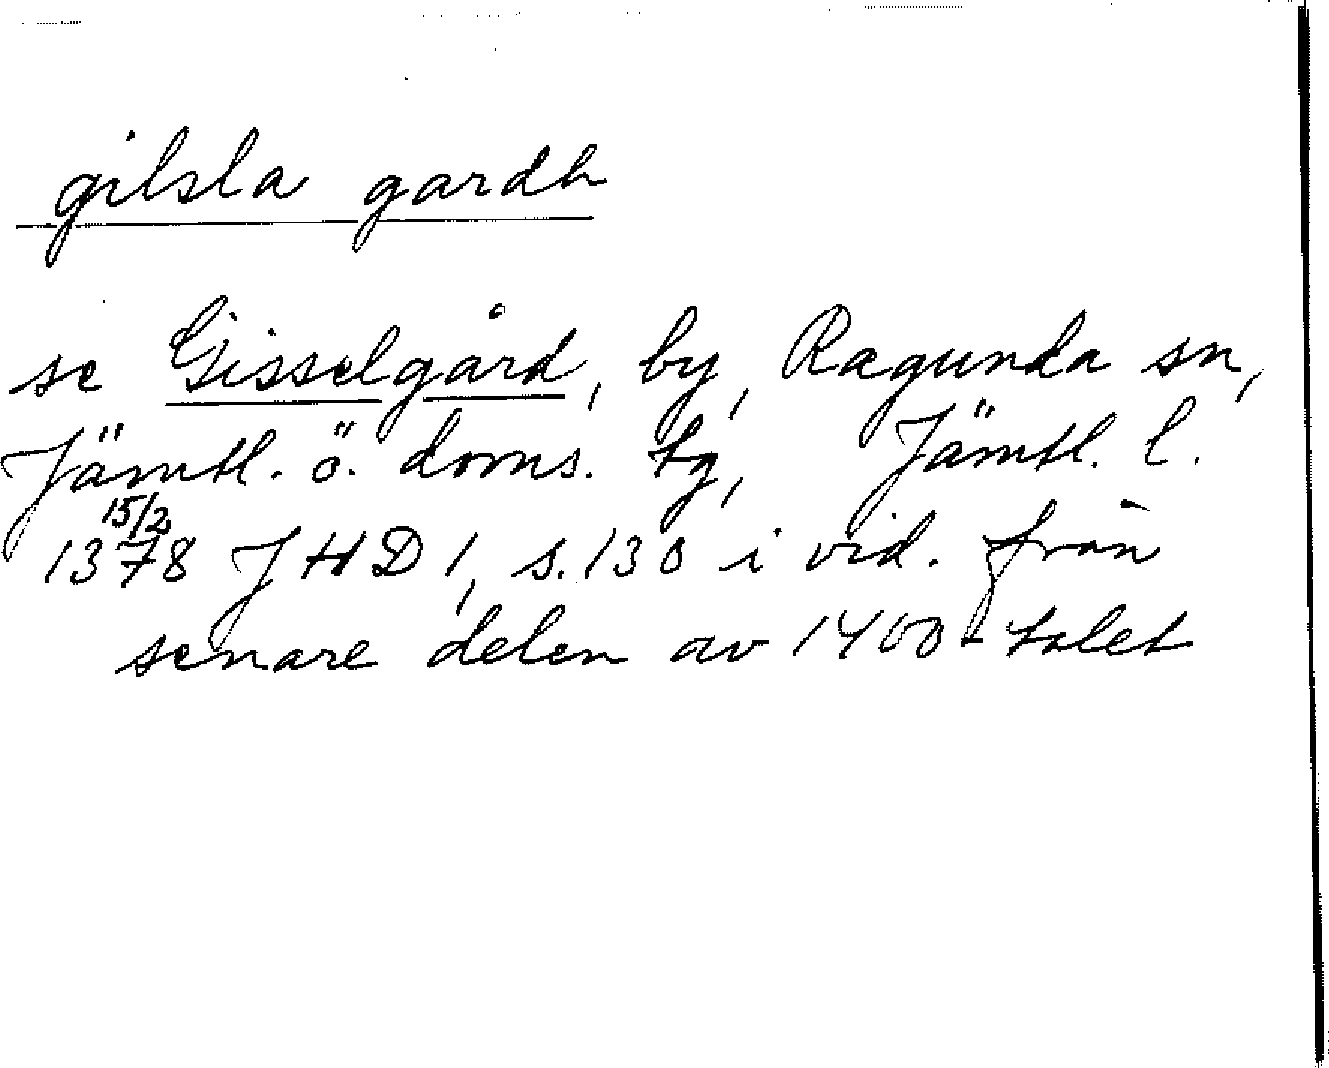 gilsla gardh
se Gisselgård, by, Ragunda sn,
Jämtl. ö. doms. tg, Jämtl. l.
15/2
1378 JHD 1, s. 130 i vid. från
senare delen av 1400-talet